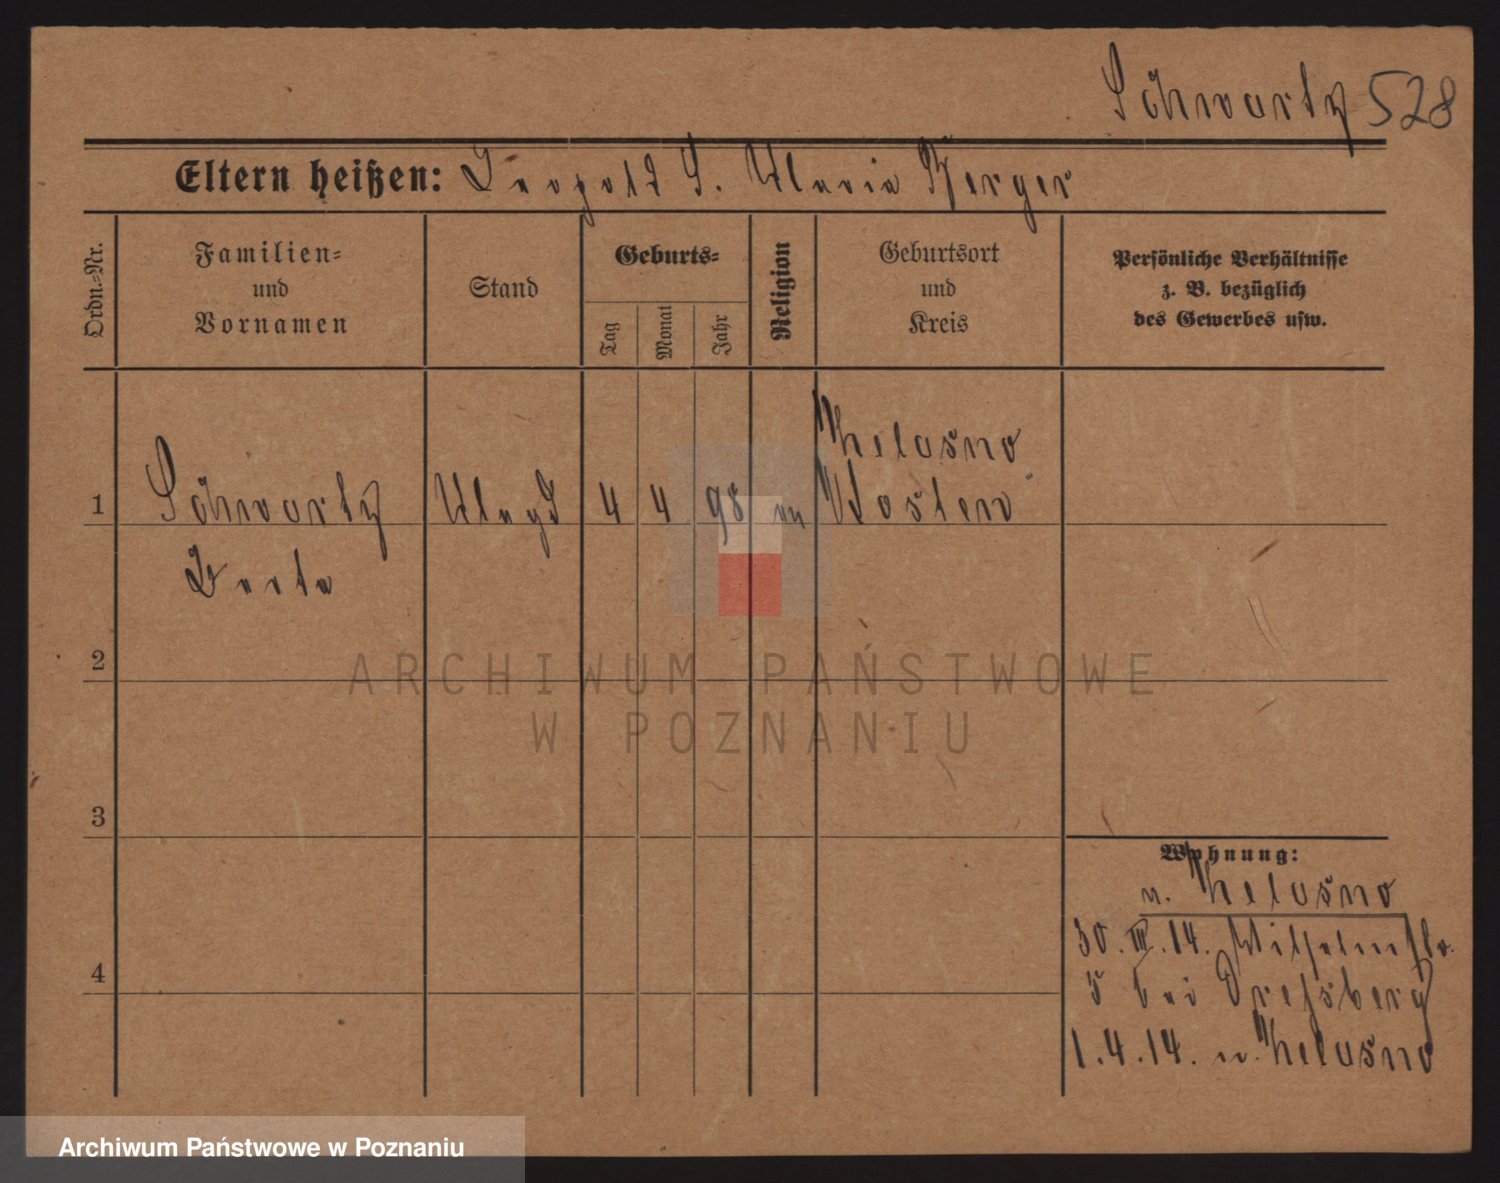 Schwartz 528
Eltern heißen: Leopold S. Maria Berger
Ordn.-Nr.
Familien- und Vornamen
Stand
Geburts-
Tag
Monat
Jahr
Religion
Geburtsort und Kreis
Persönliche Verhältnisse
z. B. bezüglich
des Gewerbes usw.
Schwartz
1
Magd
4
4
98
Kosten
Berta
2
ARCHIWUM PAŃSTWOWE
W POZNANIU
3
Wohnung:
n.
30. III. 14. Wilhelmstr.
5 bei
1.4.14. n.
4
Archiwum Państwowe w Poznaniu